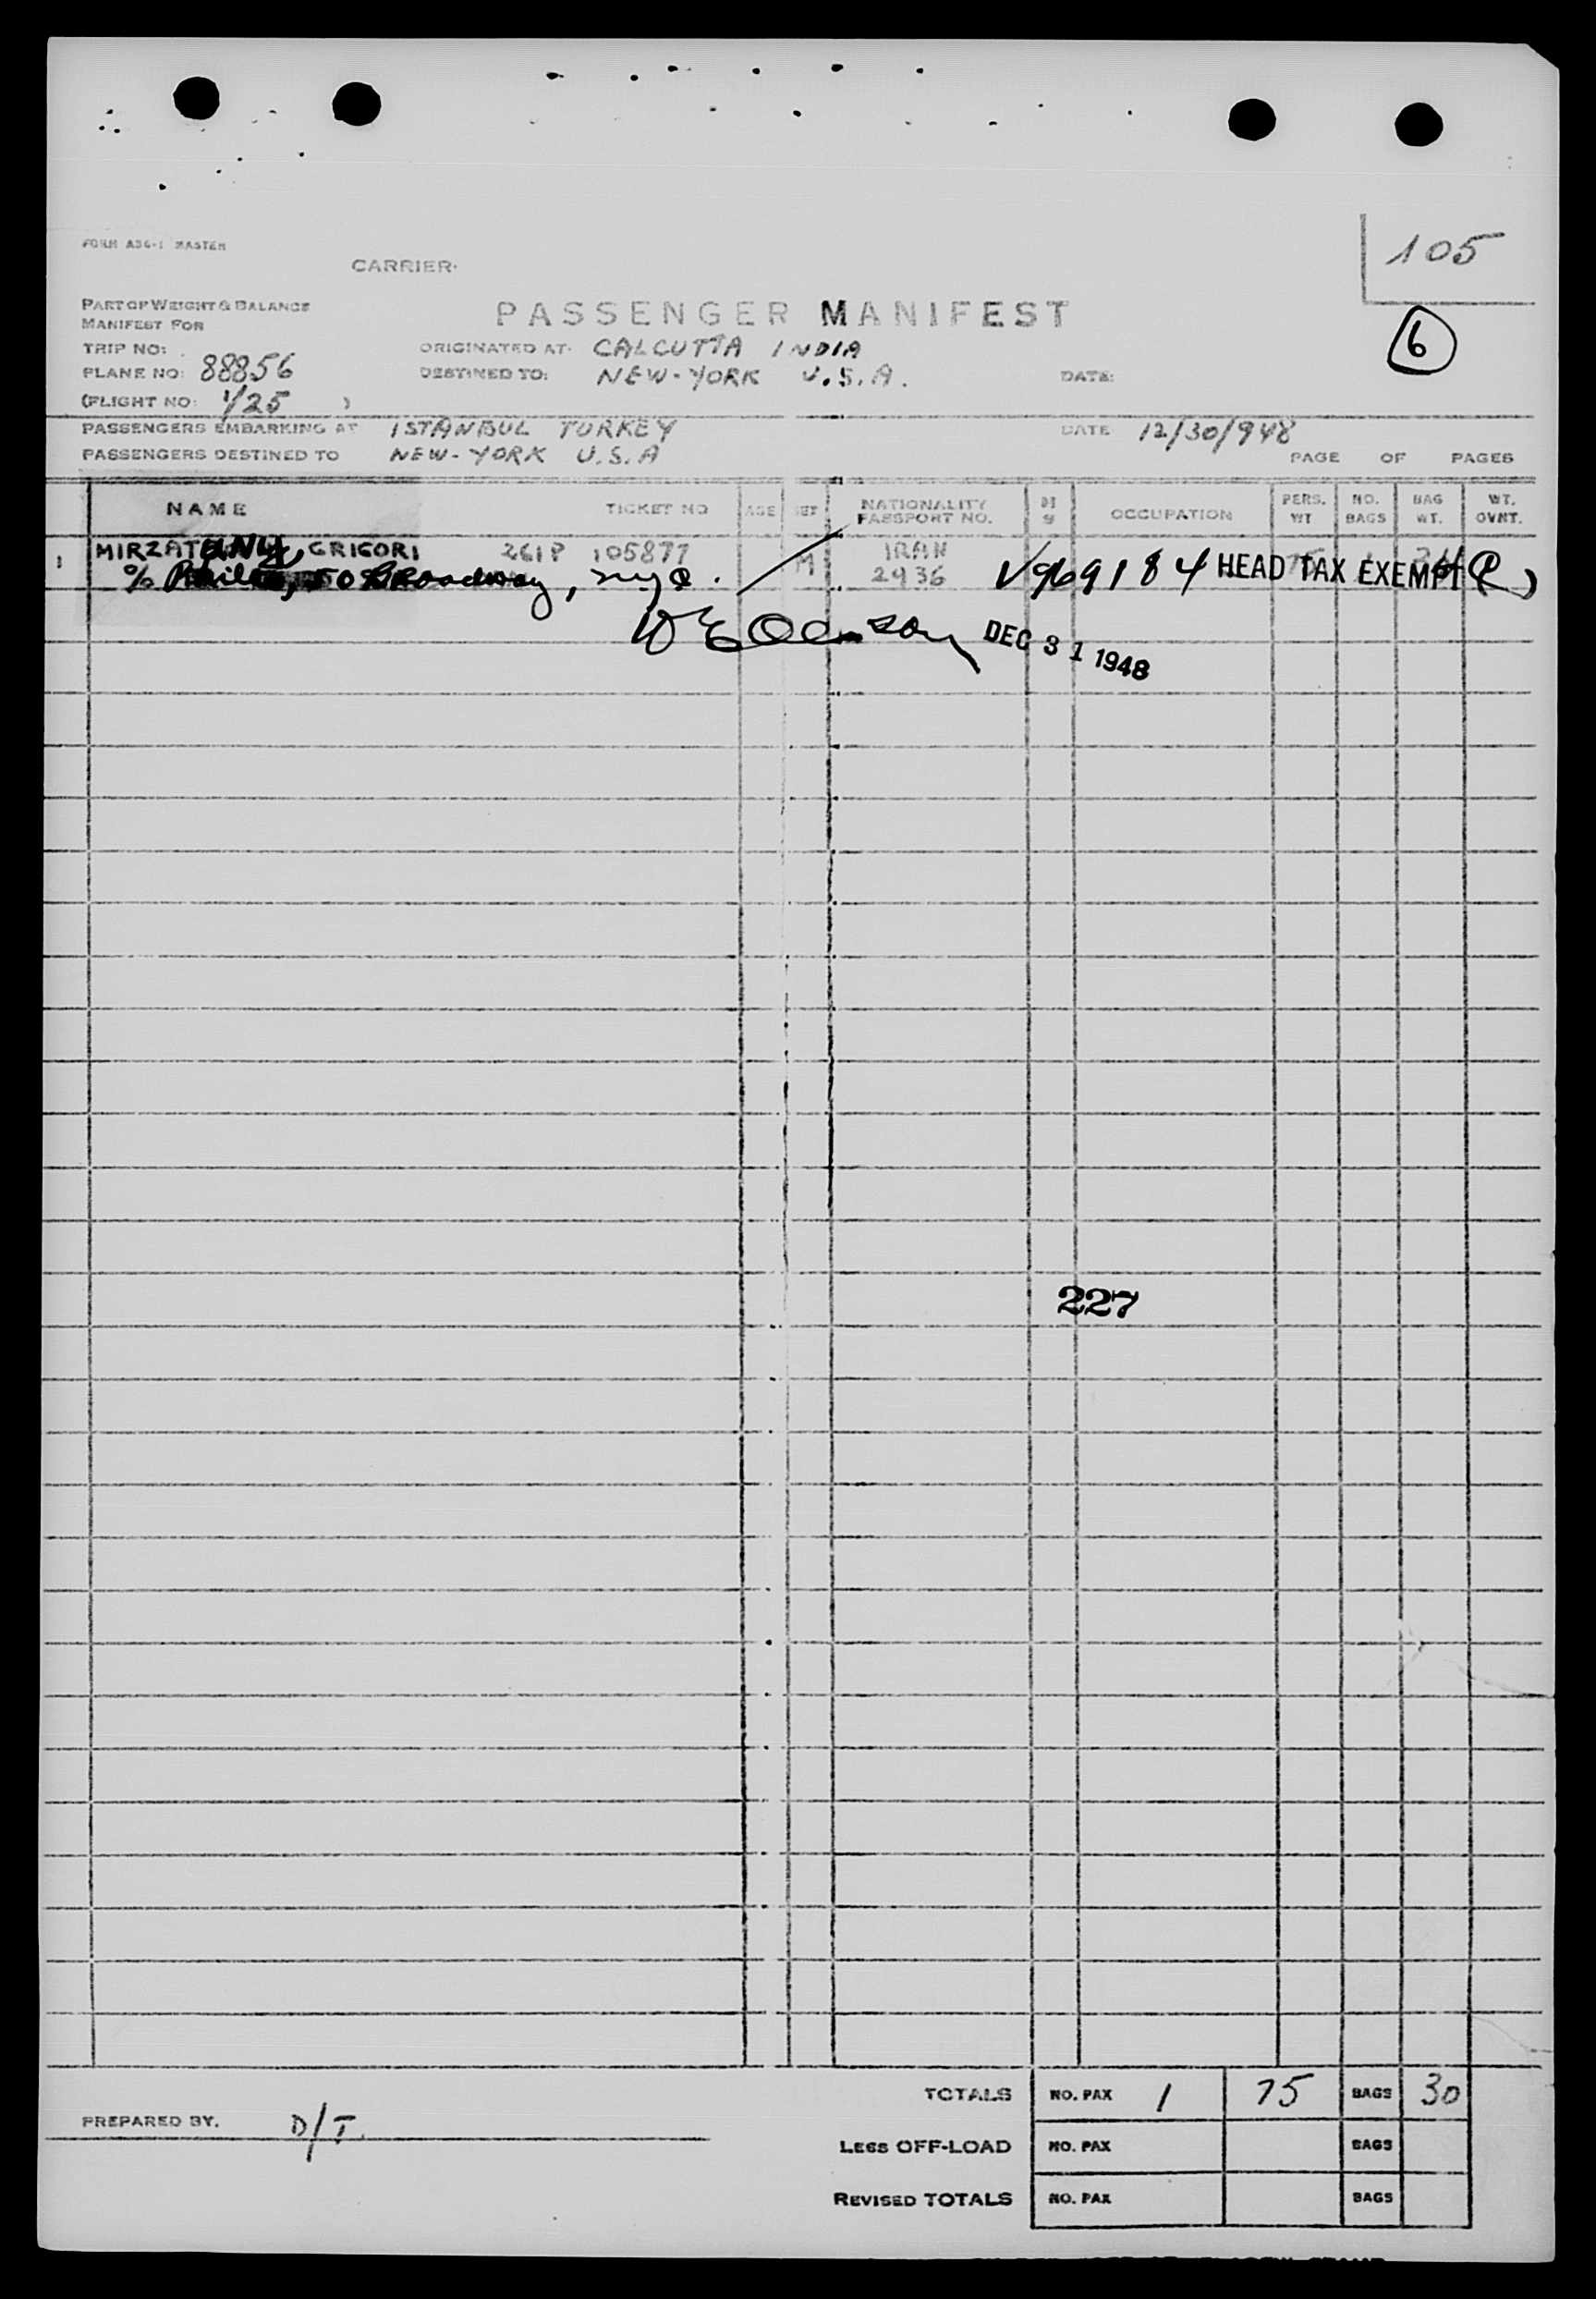 105
FORM AB6-1 MASTER
CARRIER
PART OF WEIGHT & BALANCE
MANIFEST FOR
PASSENGER MANIFEST
6
TRIP NO: ORIGINATED AT: CALCUTTA INDIA
PLANE NO: 88856 DESTINED TO: NEW-YORK U.S.A. DATE:
(FLIGHT NO: 1/25 )
PASSENGERS EMBARKING AT ISTANBUL TURKEY DATE 12/30/948
PASSENGERS DESTINED TO NEW-YORK U.S.A PAGE OF PAGES
NAME TICKET NO AGE SEX NATIONALITY PASSPORT NO. OCCUPATION PERS. WT NO. BAGS BAG WT. WT. OVNT.
1 MIRZATUNY, GRIGORI 261P 105877 M IRAN
% 50 Broadway, nyc. 2936 V969184 HEAD TAX EXEMPT
DEC 31 1948
227
TOTALS NO. PAX 1 75 BAGS 30
PREPARED BY. D/T.
LESS OFF-LOAD NO. PAX BAGS
REVISED TOTALS NO. PAX BAGS